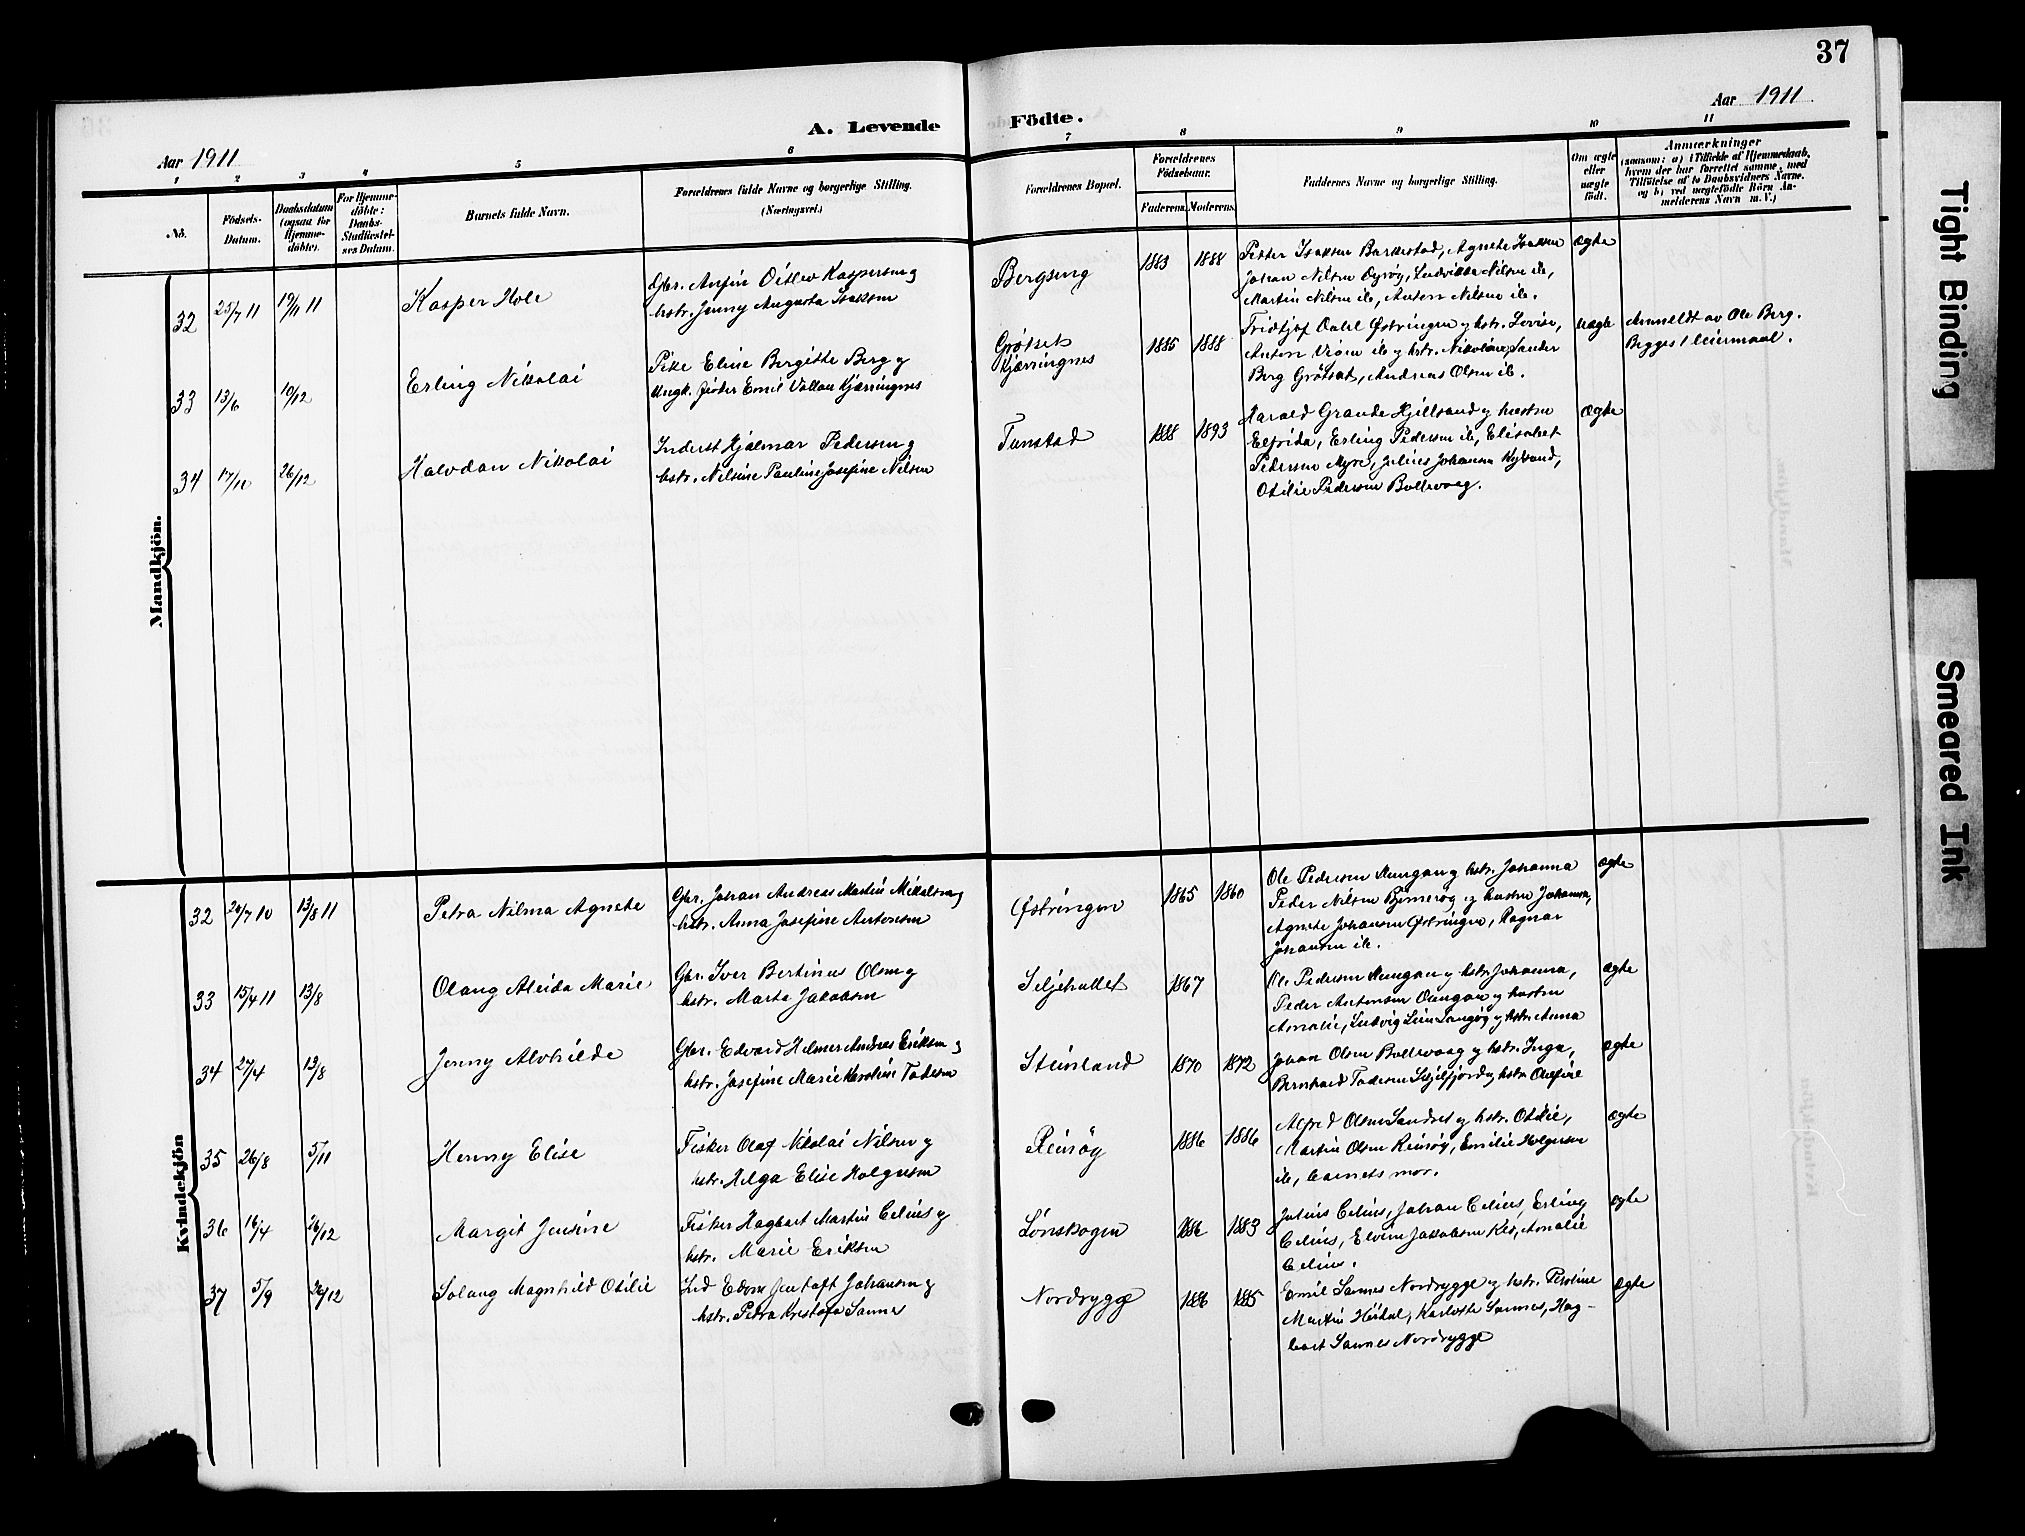 37
Aar 1911
A. Levende Födte.
Aar 1911
1 2 3 4 5 6 7 8 9 10 11
No.
Födsels-
Datum.
Daabsdatum
(ogsaa for
Hjemme-
döbte).
For Hjemme-
döbte:
Daabs-
Stadfæstel-
ses Datum.
Barnets fulde Navn.
Forældrenes fulde Navne og borgerlige Stilling.
(Næringsvei.)
Forældrenes Bopæl.
Forældrenes
Födselsaar.
Faderens. Moderens.
Faddernes Navne og borgerlige Stilling.
Om ægte
eller
uægte
født.
Anmærkninger
(saasom: a) i Tilfælde af Hjemmedaab,
hvem der har forrettet samme, med
Tilföielse af to Daabsvidners Navne.
og b) ved uægtefödte Börn An-
melderens Navn m.V.)
Mandkjön.
32 25/7 11 19/11 11 Kasper Hole
Gbr. Anfin Ditlev Kaspersen og
hstr. Jenny Augusta Isaksen
Bergseng 1883 1888
Petter Isaksen Barkestad, Agnete Isaksen
Johan Nilsen Dyrøy, Ludvikke Nilsen ib,
Martin Nilsen ib, Anton Nilsen ib.
ægte
33 13/6 10/12 Erling Nikolai
Pike Eline Bergitte Berg og
Ungk. fisker Emil Vollan Kjærringnes
Grøtset
Kjærringnes
1885 1888
Fridtjof Dahl Østringen og hstr. Lovise,
Anton ib og hstr. Nikoline, Sander
Berg Grøtset, Andreas Olsen ib.
uægte
Anmeldt av Ole Berg.
Begges 1 leiermaal.
34 17/10 26/12 Halvdan Nikolai
Inderst Hjalmar Pedersen og
hstr. Nilsine Pauline Josefine Nilsen
Tunstad 1888 1893
Harald Grande Hjillsand og hustru
Elfrida, Erling Pedersen ib, Elisabet
Pedersen Myre, Julius Johansen Kylsand,
Otilie Pedersen Bollevaag.
ægte
Kvindekjön
32 20/7 10 13/8 11 Petra Nilma Agnete
Gbr. Johan Andreas Martin Mikalsen og
hstr. Anna Josefine Antonsen
Østringen 1865 1860
Ole Pedersen Mungan og hstr. Johanna
Peder Nilsen Bjørnerøy og hustru Johanna,
Agnete Johansen Østringen, Ragnar
Johansen ib.
ægte
33 15/4 11 13/8 Olaug Aleida Marie
Gbr. Iver Bertinus Olsen og
hstr. Marta Jakobsen
Seljehullet 1867
Ole Pedersen Mungan og hstr. Johanna,
Peder Antonsen og hustru
Amalie, Ludvig Langøy og hstr. Anna
ægte
34 27/4 13/8 Jenny Alvhilde
Gbr. Edvard Helmer Andreas Eriksen og
hstr. Josefine Marie Karoline Todesen
Steinland 1870 1872
Johan Olsen Bollevaag og hstr. Inga,
Bernhard Todesen Seljefjord og hstr. Olefine
ægte
35 26/8 5/11 Henny Elise
Fisker Olaf Nikolai Nilsen og
hstr. Helga Elise Holgersen
Reinsøy 1886 1886
Alfred Olsen Sandset og hstr. Otilie,
Martin Olsen Reinsøy, Emilie Holgersen
ib, barnets mor.
ægte
36 16/4 26/12 Margit Jensine
Fisker Hagbart Martin Celius og
hstr. Marie Eriksen
Lønskogen 1886 1883
Julius Celius, Johan Celius, Erling
Celius, Elvine Jakobsen, Amalie
Celius.
ægte
37 5/9 26/12 Solaug Magnhild Otilie
Ind Edvin Johansen og
hstr. Petra Kristofa Sannes
Nordrygge 1886 1885
Emil Sannes Nordrygge og hstr. Peroline
Martin, Karlotte Sannes, Hag-
bart Sannes Nordrygge
ægte
Tight Binding
Smeared Ink